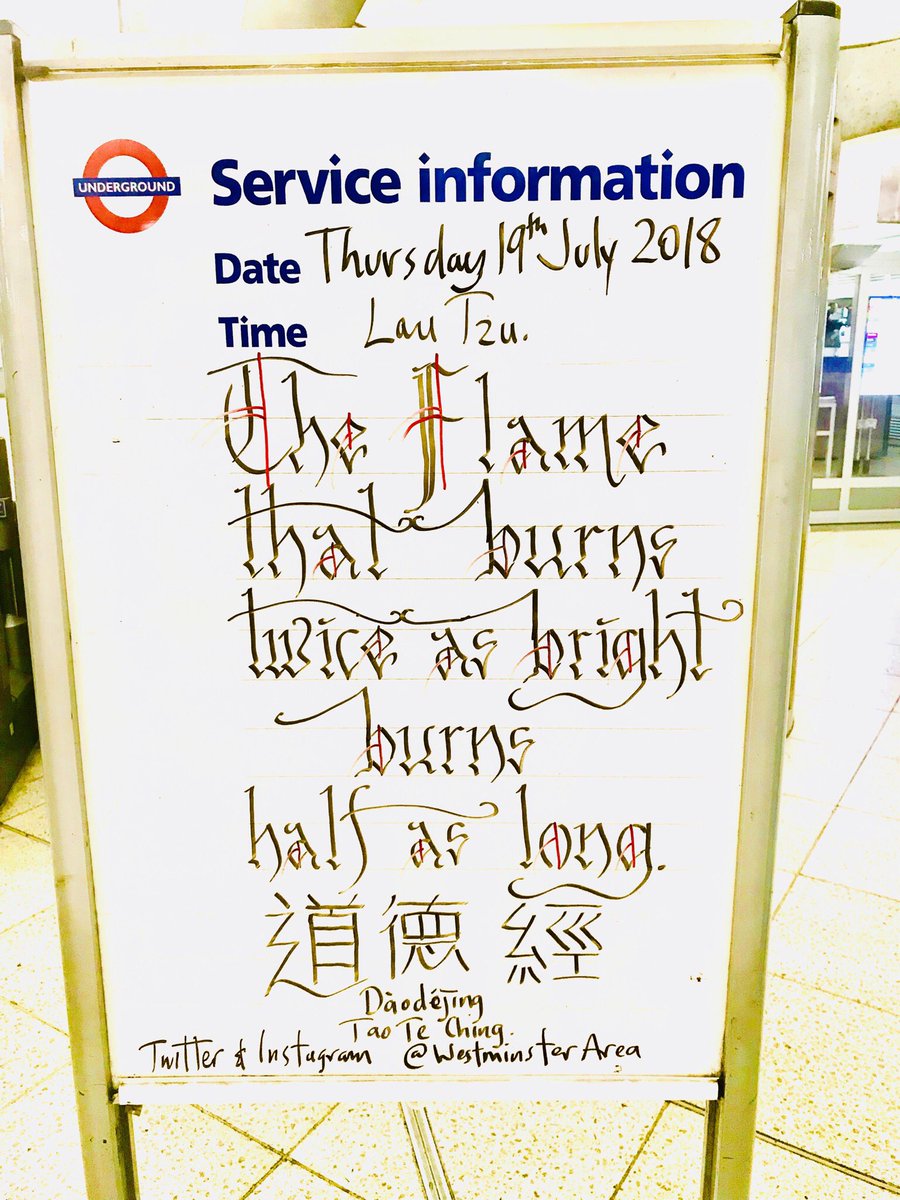 UNDERGROUND
Service information
Date Thursday 19th July 2018
Time Lau Tzu.
The Flame
that burns
twice as bright
burns
half as long.
道德經
Dàodéjīng
Tao Te Ching.
Twitter & Instagram @WestminsterArea